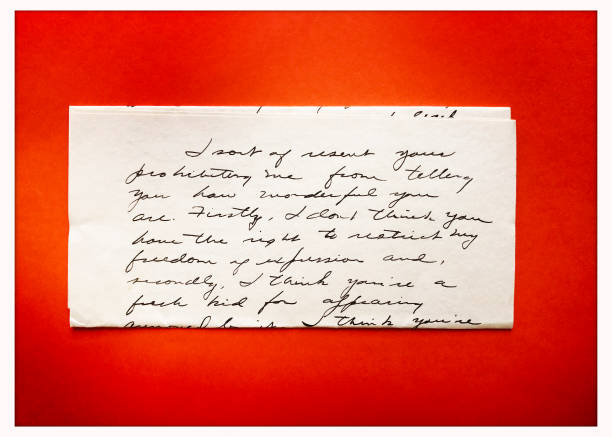 I sort of resent your
prohibiting me from telling
you how wonderful you
are. Firstly, I don't think you
have the right to restrict my
freedom of expression and,
secondly, I think you're a
fresh kid for appearing
annoyed by it. I think you're